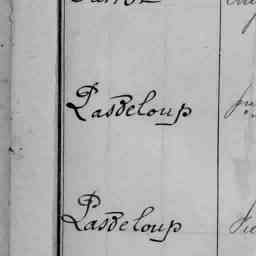 Pasdeloup
Pasdeloup